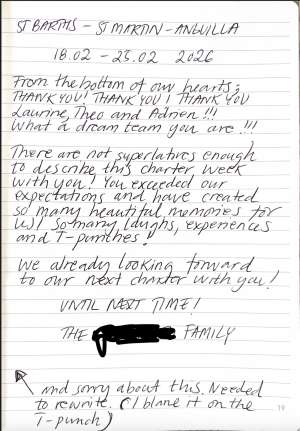 ST BARTHS - ST MARTIN - ANGUILLA
18.02 - 25.02 2026
From the bottom of our hearts;
THANK YOU! THANK YOU! THANK YOU
Laurine, Theo and Adrien!!!
What a dream team you are!!!
There are not superlatives enough
to describe this charter week
with you! You exceeded our
expectations and have created
so many beautiful memories for
us! So many laughs, experiences
and T-punches!
We already looking forward
to our next charter with you!
UNTIL NEXT TIME!
THE FAMILY
and sorry about this. Needed
to rewrite. (I blame it on the
T-punch)